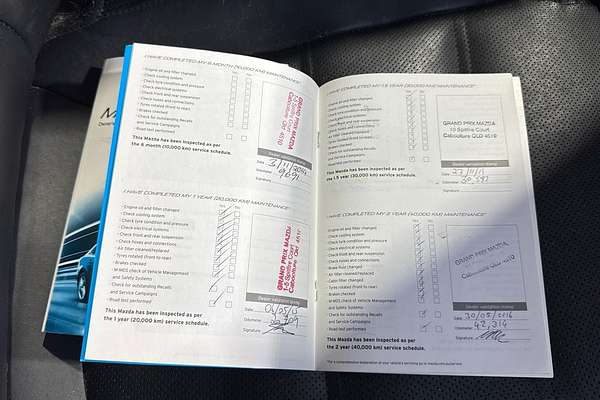 I HAVE COMPLETED MY 6 MONTH (10,000 KM) MAINTENANCE*
- Engine oil and filter changed
- Check cooling system
- Check tyre condition and pressure
- Check electrical systems
- Check front and rear suspension
- Check hoses and connections
- Tyres rotated (front to rear)
- Brakes checked
- Check for outstanding Recalls
and Service Campaigns
- Road test performed
This Mazda has been inspected as per
the 6 month (10,000 km) service schedule.
GRAND PRIX MAZDA
Caboolture
Qld 4510
Dealer validation stamp
Date
Odometer
Signature
I HAVE COMPLETED MY 1 YEAR (20,000 KM) MAINTENANCE*
- Engine oil and filter changed
- Check cooling system
- Check tyre condition and pressure
- Check electrical systems
- Check front and rear suspension
- Check hoses and connections
- Air filter cleaned/replaced
- Tyres rotated (front to rear)
- Brakes checked
- M-MDS check of Vehicle Management
and Safety Systems
- Check for outstanding Recalls
and Service Campaigns
- Road test performed
This Mazda has been inspected as per
the 1 year (20,000 km) service schedule.
GRAND PRIX MAZDA
1-5 Spitfire Court
Caboolture Qld 4510
Dealer validation stamp
Date
Odometer
Signature
I HAVE COMPLETED MY 1.5 YEAR (30,000 KM) MAINTENANCE*
- Engine oil and filter changed
- Check cooling system
- Check tyre condition and pressure
- Check electrical systems
- Check front and rear suspension
- Check hoses and connections
- Air filter cleaned/replaced
- Tyres rotated (front to rear)
- Brakes checked
- Check for outstanding Recalls
and Service Campaigns
- Road test performed
This Mazda has been inspected as per
the 1.5 year (30,000 km) service schedule.
GRAND PRIX MAZDA
Spitfire Court,
Caboolture QLD 4510
Dealer validation stamp
Date
Odometer
Signature
I HAVE COMPLETED MY 2 YEAR (40,000 KM) MAINTENANCE*
- Engine oil and filter changed
- Check cooling system
- Check tyre condition and pressure
- Check electrical systems
- Check front and rear suspension
- Check hoses and connections
- Brake fluid changed
- Air filter cleaned/replaced
- Cabin filter changed
- Tyres rotated (front to rear)
- Brakes checked
- M-MDS check of Vehicle Management
and Safety Systems
- Check for outstanding Recalls
and Service Campaigns
- Road test performed
This Mazda has been inspected as per
the 2 year (40,000 km) service schedule.
GRAND PRIX MAZDA
Caboolture QLD 4510
Dealer validation stamp
Date 30/05/2016
Odometer 42,314
Signature